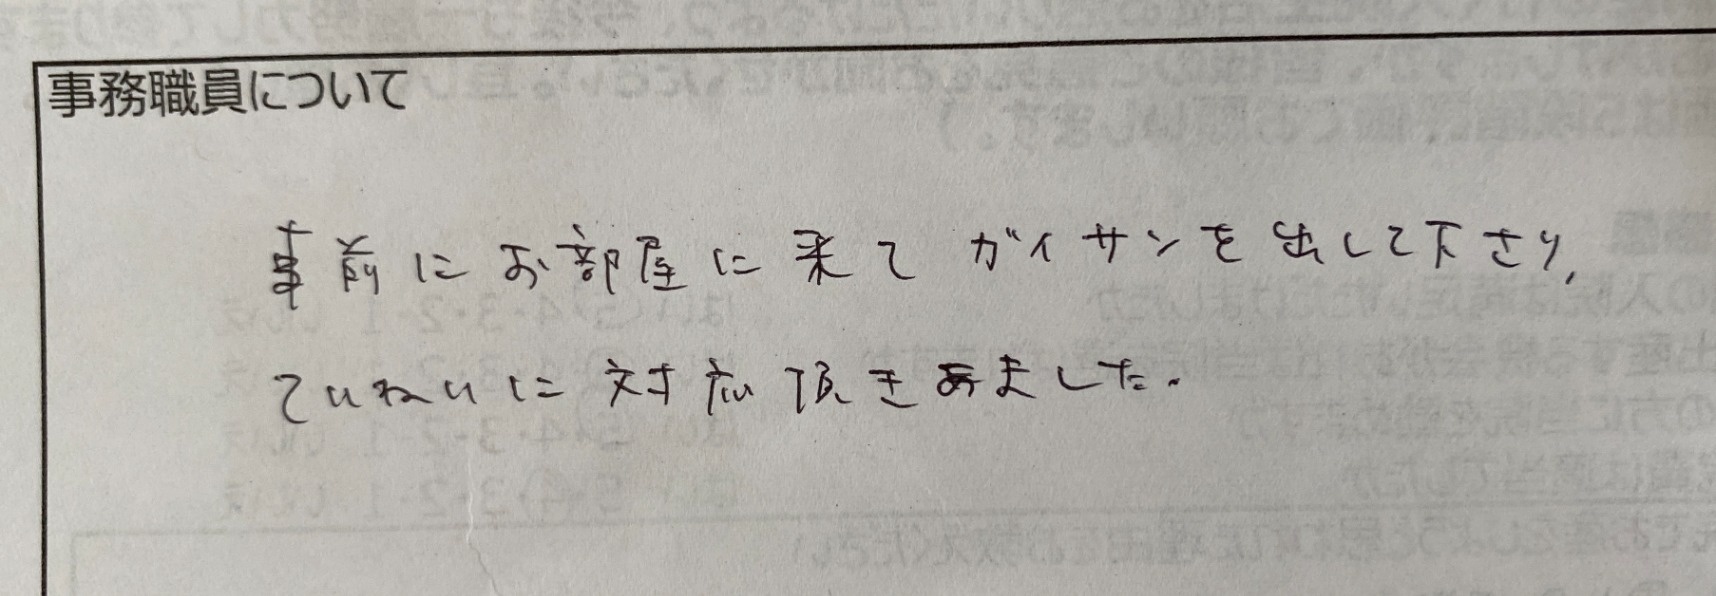 事務職員について
事前にお部屋に来てガイサンを出して下さり、
ていねいに対応頂きました。